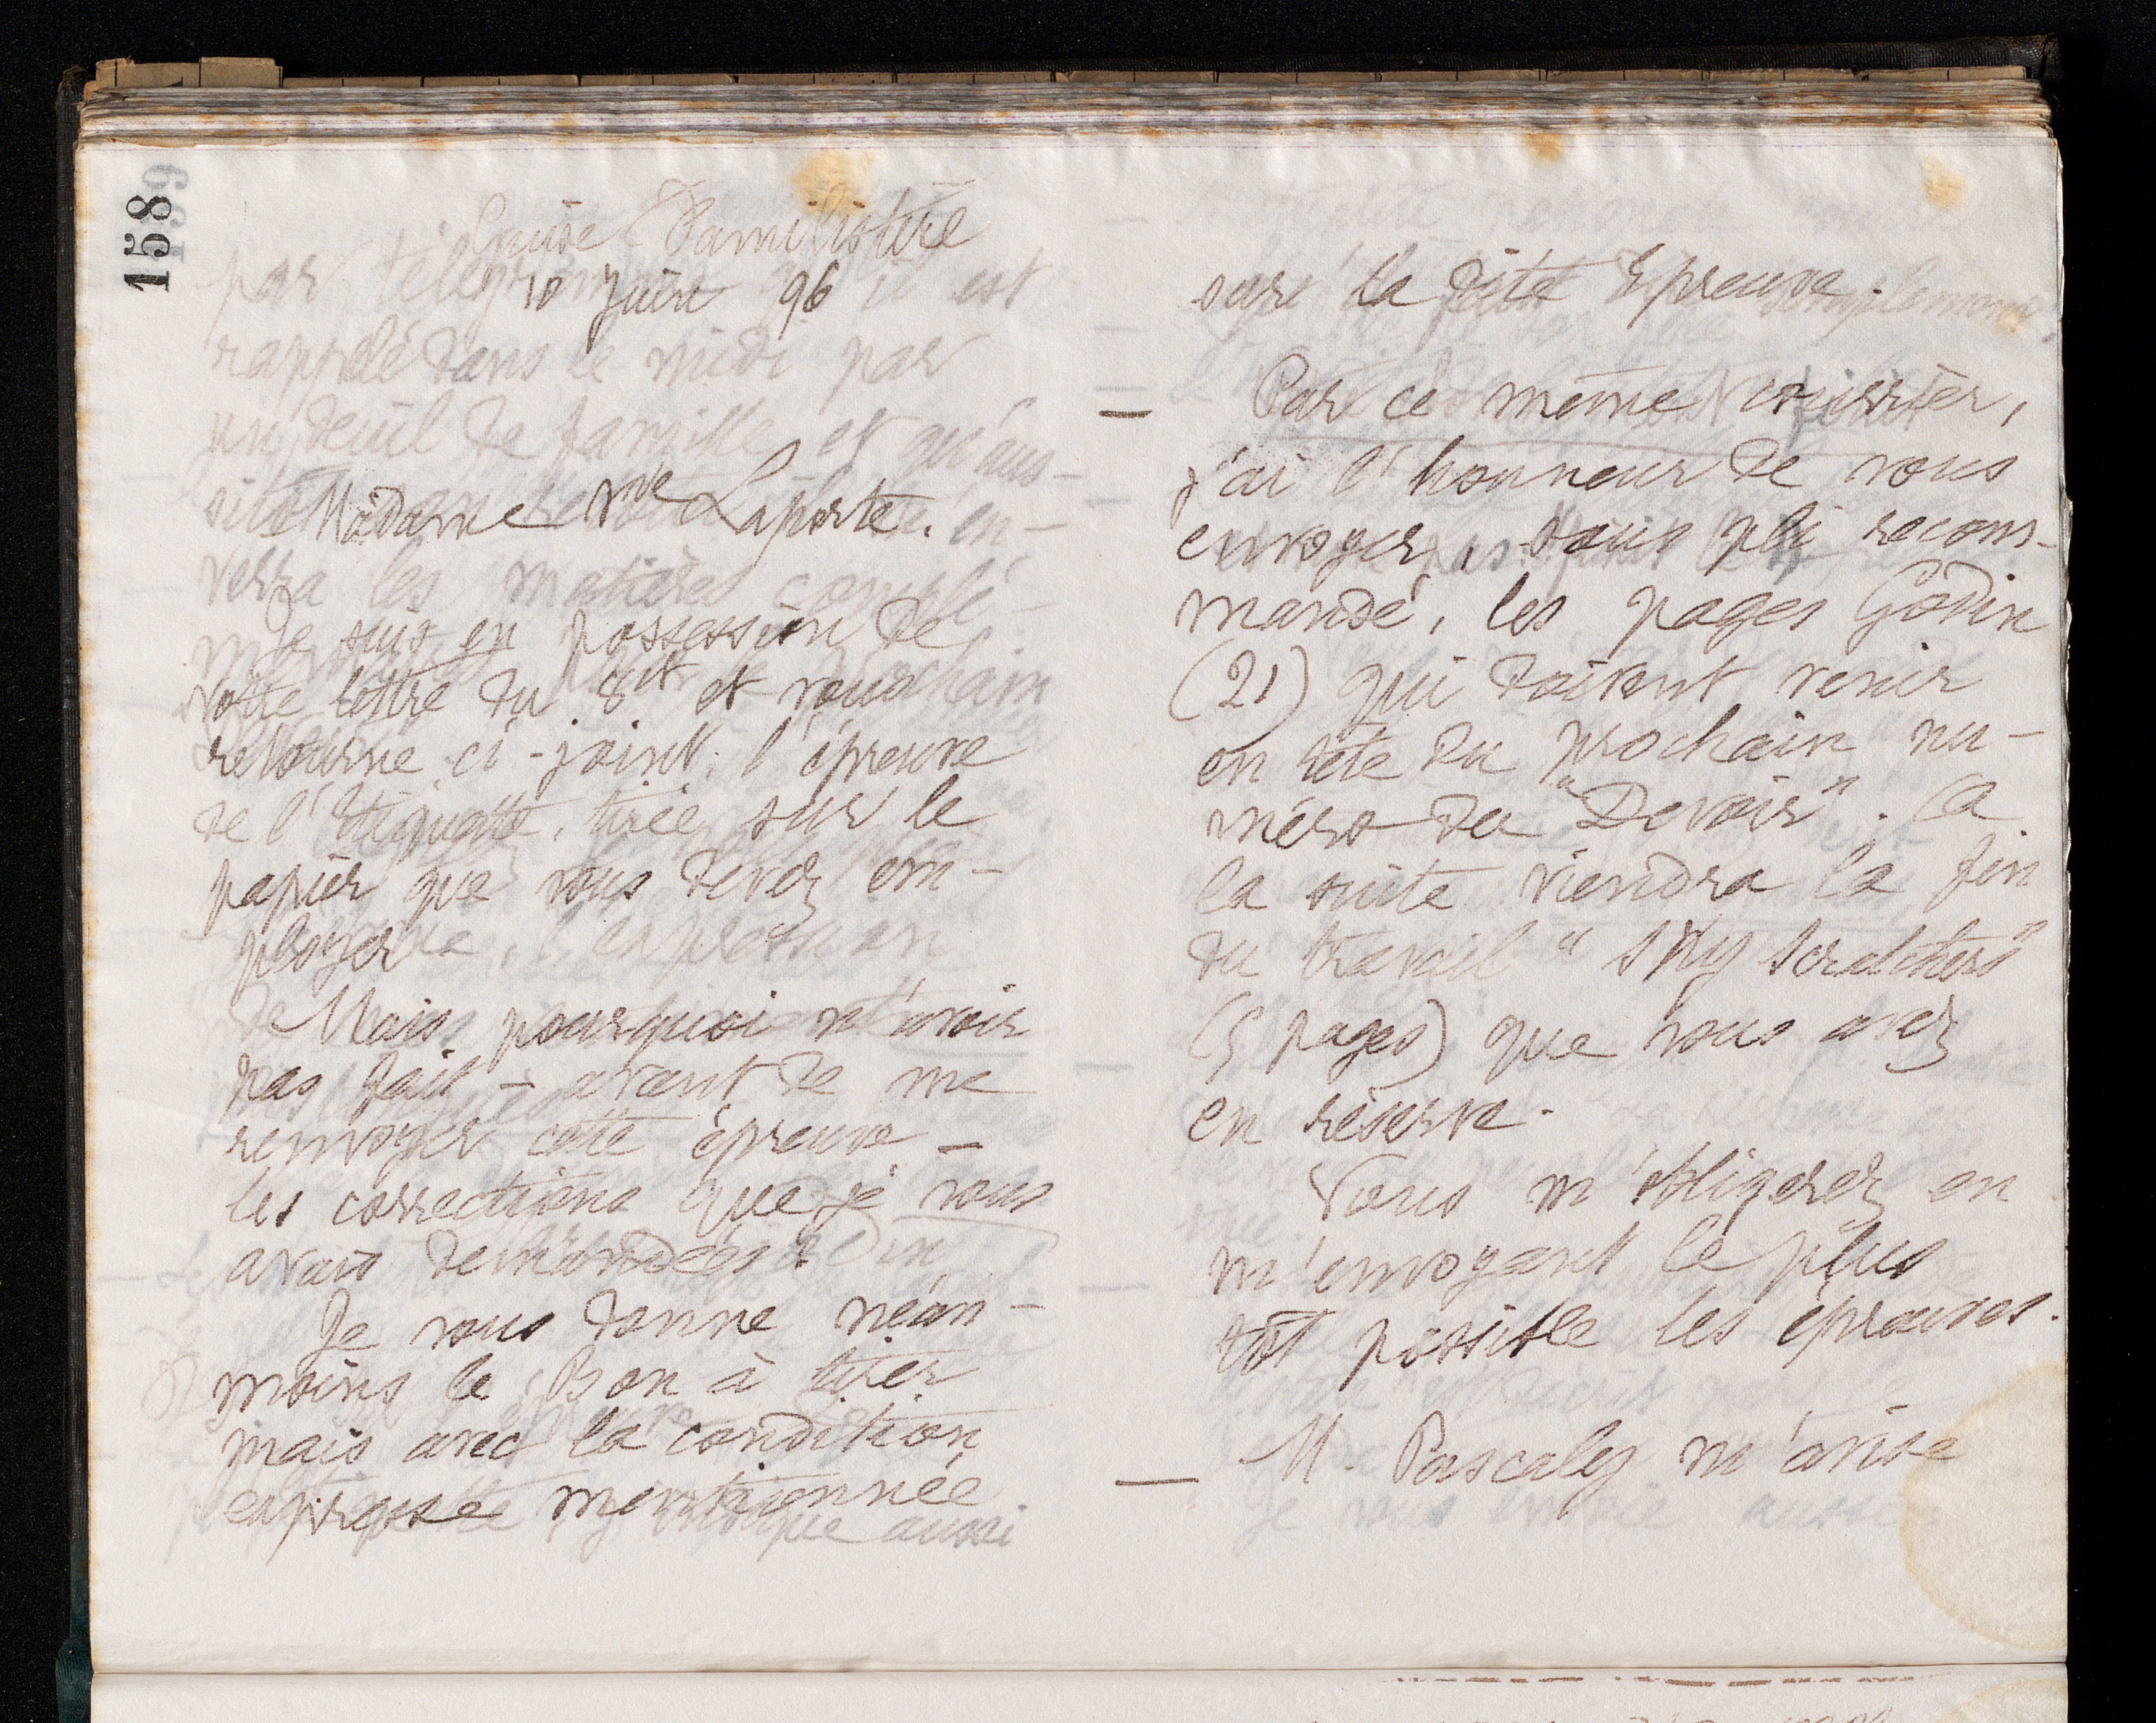 158
Guise Familistère
10 Juin 96
Madame Vve Laporte.
Je suis en possession de
votre lettre du 8 ct et vous
retourne ci-joint l'épreuve
de l'étiquette, tirée sur le
papier que vous devez em-
ployer
Mais pourquoi n'avoir
pas fait - avant de me
renvoyer cette épreuve -
les corrections que je vous
avais demandées ?
Je vous donne néan-
moins le Bon à tirer
mais avec la condition
expresse mentionnée
sur la dite Epreuve.
— Par ce même courrier,
j'ai l'honneur de vous
envoyer, sous pli recom-
mandé, les pages Godin
(21) qui doivent venir
en tête du prochain nu-
méro du "Devoir". A
la suite viendra la fin
du travail "Sky Scratchers"
(5 pages) que vous avez
en réserve.
Vous m'obligerez en
m'envoyant le plus
tôt possible les épreuves.
— M. Pascaly m'avise